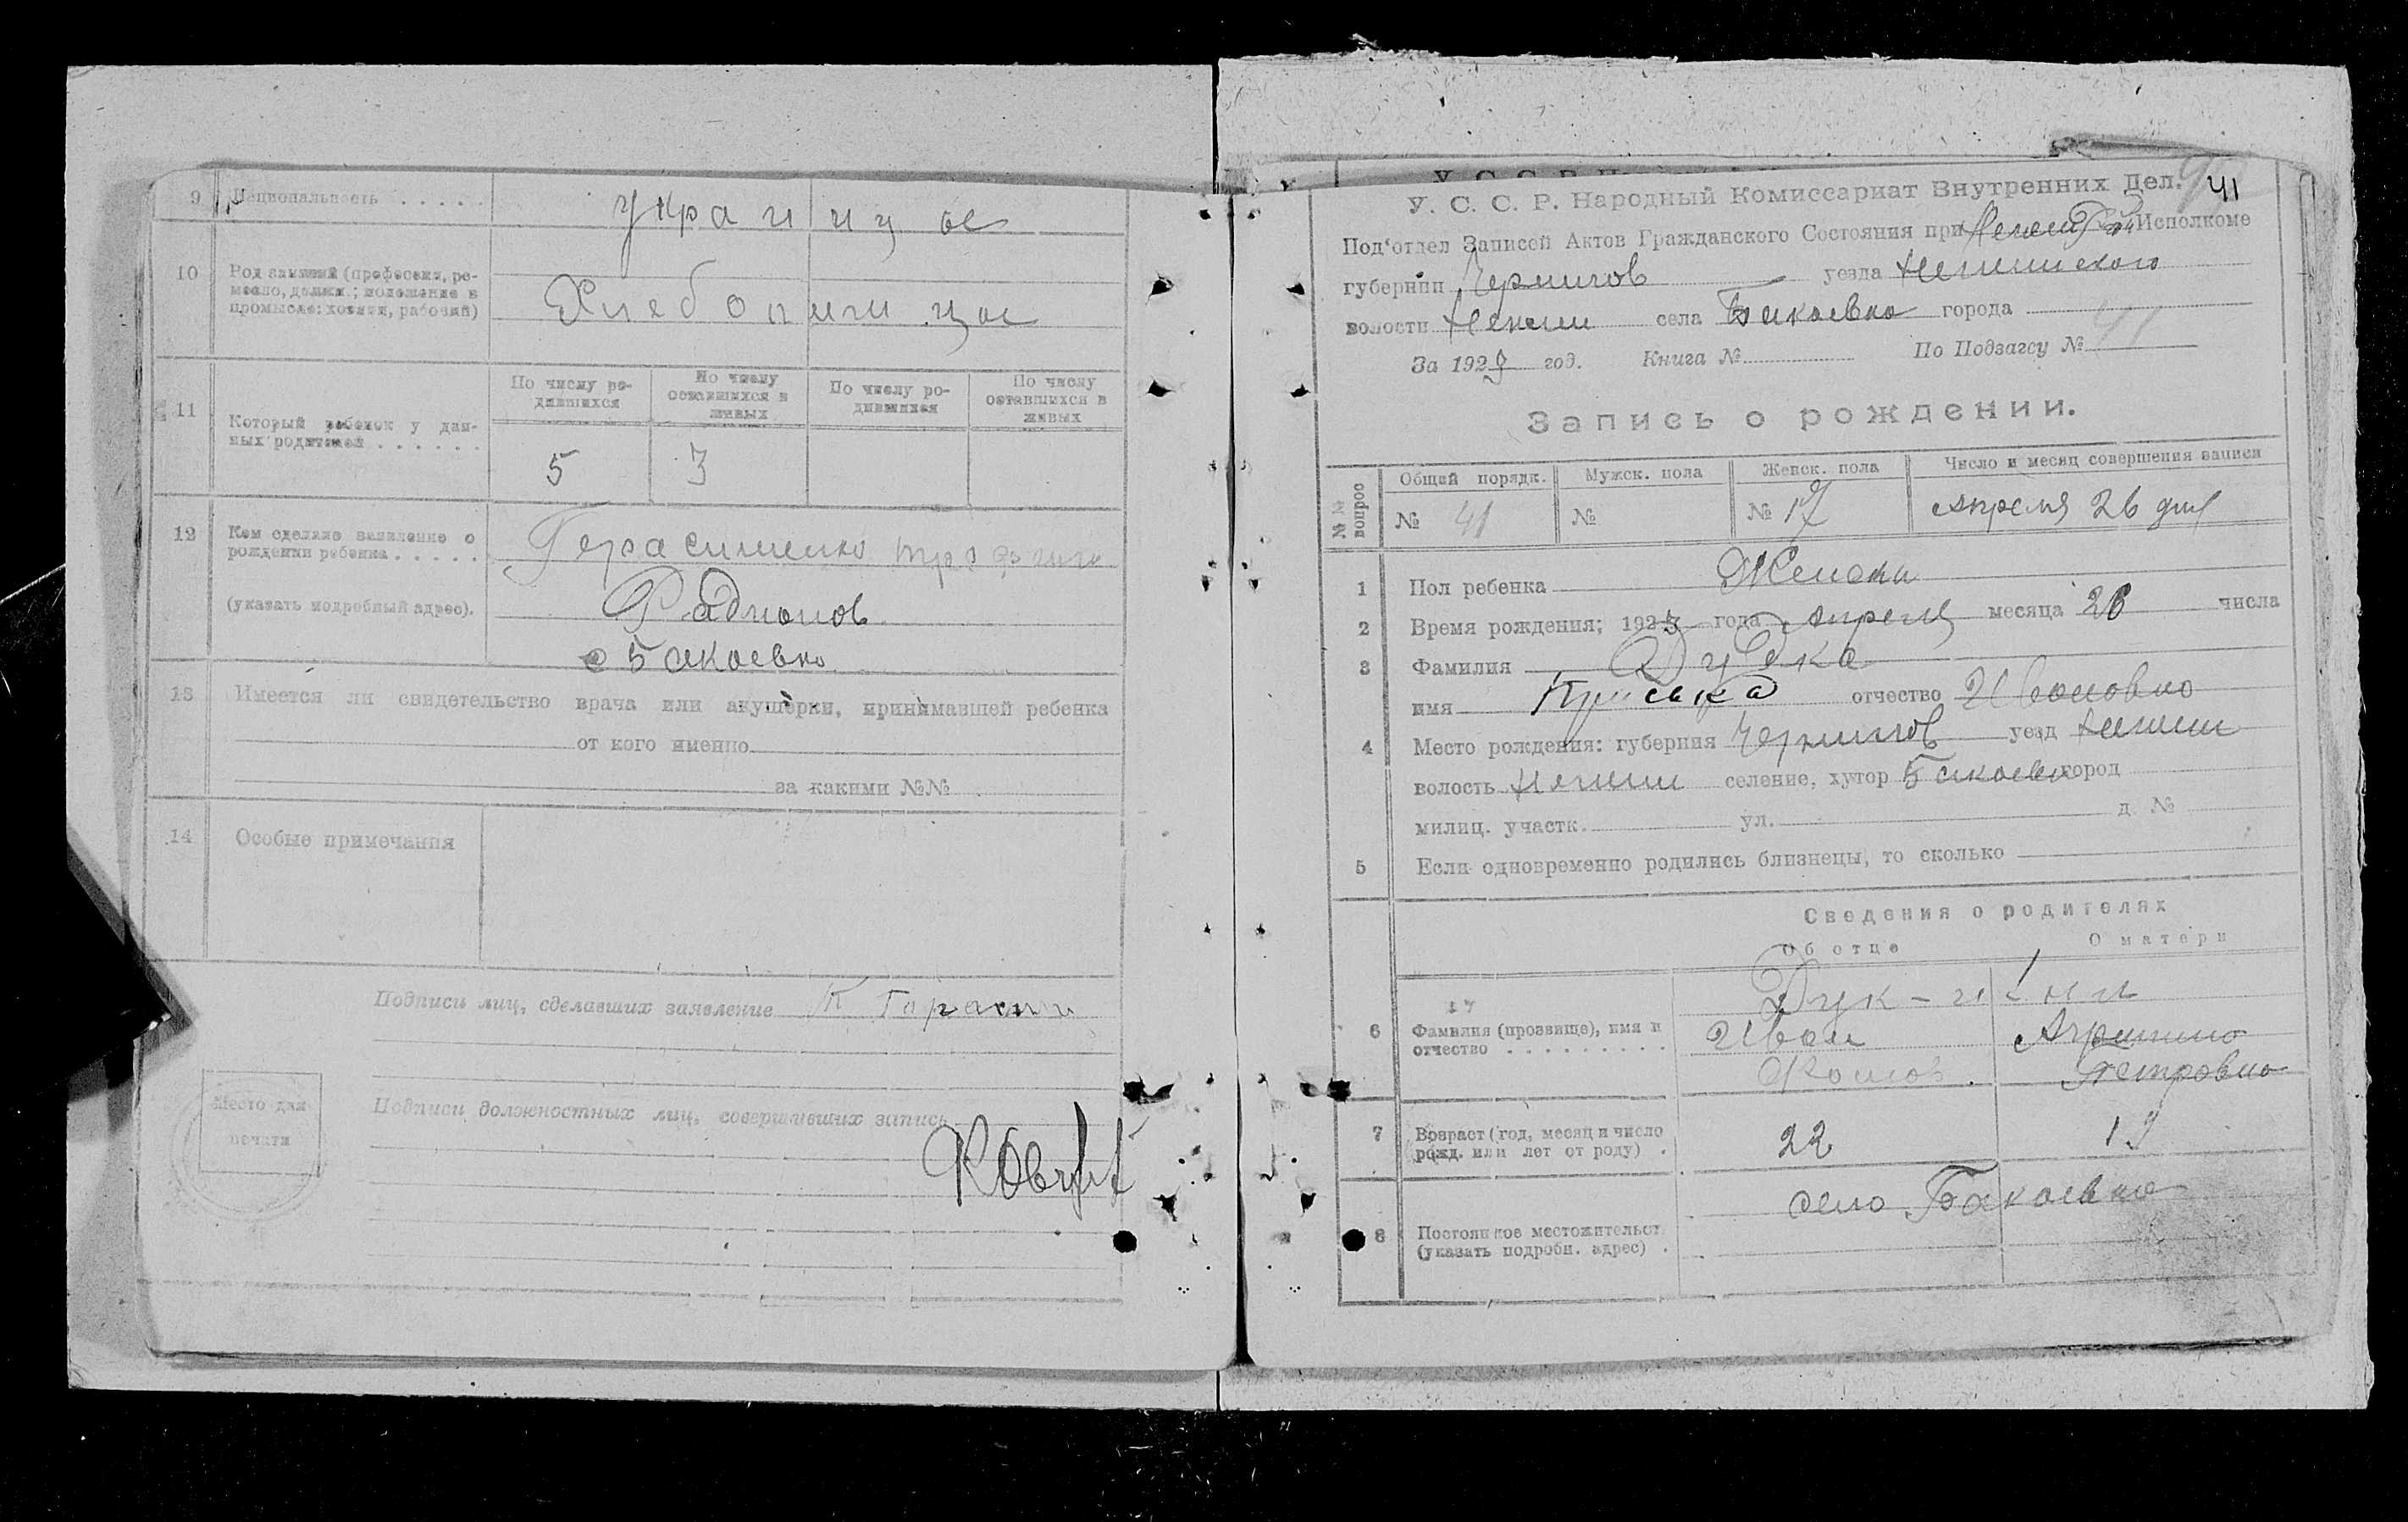 9 Национальность . . . . . украинцы
10 Род занятий (професия, ре-
месло, должн.; положение в
промысле: хозяин, рабочий)
11 Который ребенок у дан-
ных родителей . . . . . .
По числу ро-
дившихся
По числу
оставшихся в
живых
По числу ро-
дившихся
По числу
оставшихся в
живых
5 3
12 Кем сделано заявление о
рождении ребенка . . . . .
(указать подробный адрес).
Герасименко
Радионов
с Бакаевка
13 Имеется ли свидетельство врача или акушерки, принимавшей ребенка
от кого именно
за какими №№
14 Особые примечания
Подписи лиц, сделавших заявление
Место для
печати
Подписи должностных лиц, совершивших запись
41
У. С. С. Р. Народный Комиссариат Внутренних Дел.
Под'отдел Записей Актов Гражданского Состояния при Исполкоме
губернии Чернигов уезда Нежинского
волости Нежин села Бакаевка города
За 1923 год. Книга № По Подзагсу № 41
Запись о рождении.
№№ вопрос
Общий порядк. Мужск. пола Женск. пола Число и месяц совершения записи
№ 41 № № 17 Апреля 26 дня
1 Пол ребенка Женска
2 Время рождения; 1923 года Апреля месяца 26 числа
3 Фамилия Дудка
имя Приська отчество Ивановна
4 Место рождения: губерния Чернигов уезд Нежин
волость Нежин селение, хутор Бакаевка город
милиц. участк. ул. д. №
5 Если одновременно родились близнецы, то сколько
Сведения о родителях
Об отце О матери
6 Фамилия (прозвище), имя и
отчество . . . . . . . . .
Иван
Агрипина
Петровна
7 Возраст (год, месяц и число
рожд. или лет от роду) .
22 19
8 Постоянное местожительст.
(указать подробн. адрес) .
село Бакаевка